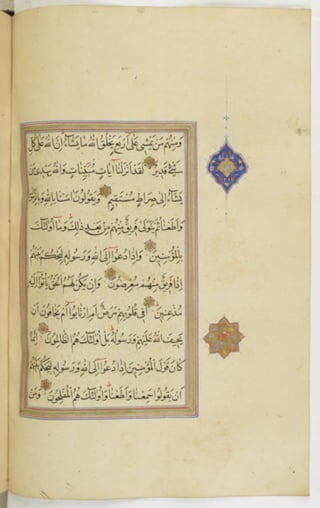 وَمِنْهُمْ مَنْ يَمْشِى عَلَى أَرْبَعٍ يَخْلُقُ اللهُ مَا يَشَاءُ إِنَّ اللهَ عَلَى كُلِّ
شَىْءٍ قَدِيرٌ لَقَدْ أَنْزَلْنَا آيَاتٍ مُبَيِّنَاتٍ وَاللهُ يَهْدِى مَنْ
يَشَاءُ إِلَى صِرَاطٍ مُسْتَقِيمٍ وَيَقُولُونَ آمَنَّا بِاللهِ وَبِالرَّسُولِ
وَأَطَعْنَا ثُمَّ يَتَوَلَّى فَرِيقٌ مِنْهُمْ مِنْ بَعْدِ ذٰلِكَ وَمَا أُولٰئِكَ
بِالْمُؤْمِنِينَ وَإِذَا دُعُوا إِلَى اللهِ وَرَسُولِهِ لِيَحْكُمَ بَيْنَهُمْ
إِذَا فَرِيقٌ مِنْهُمْ مُعْرِضُونَ وَإِنْ يَكُنْ لَهُمُ الْحَقُّ يَأْتُوا إِلَيْهِ
مُذْعِنِينَ أَفِى قُلُوبِهِمْ مَرَضٌ أَمِ ارْتَابُوا أَمْ يَخَافُونَ أَنْ
يَحِيفَ اللهُ عَلَيْهِمْ وَرَسُولُهُ بَلْ أُولٰئِكَ هُمُ الظَّالِمُونَ إِنَّمَا
كَانَ قَوْلَ الْمُؤْمِنِينَ إِذَا دُعُوا إِلَى اللهِ وَرَسُولِهِ لِيَحْكُمَ بَيْنَهُمْ
أَنْ يَقُولُوا سَمِعْنَا وَأَطَعْنَا وَأُولٰئِكَ هُمُ الْمُفْلِحُونَ وَمَنْ